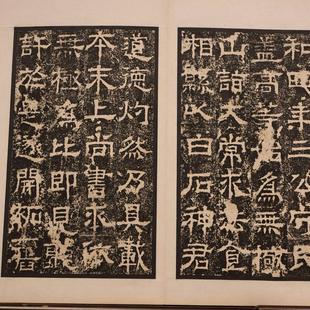 和四年三公守民
蓋高等始為無極
山詣大常求法食
相縣以白石神君
道德灼然乃具載
本末上尚書求依
无極為比即見聽
許於是遂開拓舊